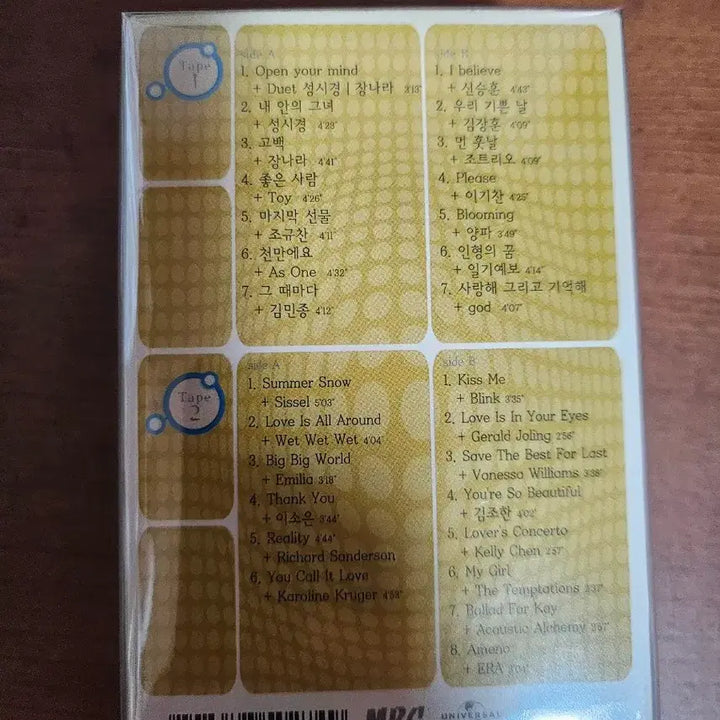 Tape
1
side A
1. Open your mind
+ Duet 성시경 | 장나라 3'13"
2. 내 안의 그녀
+ 성시경 4'23"
3. 고백
+ 장나라 4'41"
4. 좋은 사람
+ Toy 4'26"
5. 마지막 선물
+ 조규찬 4'11"
6. 천만에요
+ As One 4'32"
7. 그 때마다
+ 김민종 4'12"
side B
1. I believe
+ 신승훈 4'43"
2. 우리 기쁜 날
+ 김장훈 4'09"
3. 먼 훗날
+ 조트리오 4'09"
4. Please
+ 이기찬 4'25"
5. Blooming
+ 양파 3'49"
6. 인형의 꿈
+ 일기예보 4'14"
7. 사랑해 그리고 기억해
+ god 4'07"
Tape
2
side A
1. Summer Snow
+ Sissel 5'03"
2. Love Is All Around
+ Wet Wet Wet 4'04"
3. Big Big World
+ Emilia 3'18"
4. Thank You
+ 이소은 3'44"
5. Reality 4'44"
+ Richard Sanderson
6. You Call It Love
+ Karoline Kruger 4'53"
side B
1. Kiss Me
+ Blink 3'35"
2. Love Is In Your Eyes
+ Gerald Joling 2'56"
3. Save The Best For Last
+ Vanessa Williams 3'38"
4. You're So Beautiful
+ 김조한 4'02"
5. Lover's Concerto
+ Kelly Chen 2'57"
6. My Girl
+ The Temptations
7. Ballad For Kay
+ Acoustic Alchemy
8. Ameno
+ ERA
MBC
UNIVERSAL